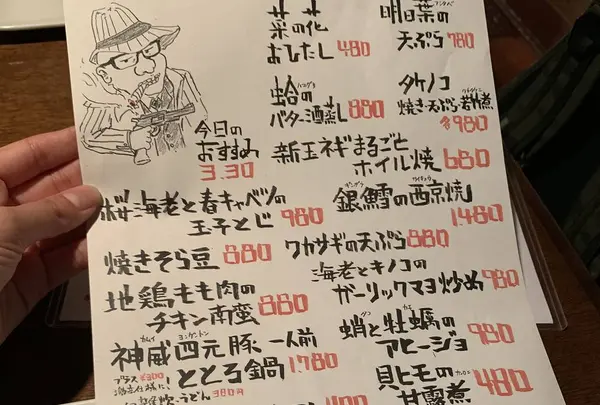 今日の
おすすめ
3.30
菜の花
おひたし 480
明日葉の
天ぷら 780
蛤の
バター酒蒸し 880
タケノコ
焼き・天ぷら・若竹煮
各980
新玉ネギまるごと
ホイル焼 680
桜海老と春キャベツの
玉子とじ 980
銀鱈の西京焼
1.480
焼きそら豆 880
ワカサギの天ぷら 880
地鶏もも肉の
チキン南蛮 880
海老とキノコの
ガーリックマヨ炒め 980
神威四元豚 一人前
ととろ鍋 1.780
プラス¥300
蛸と牡蠣の
アヒージョ 980
うどん 380円
貝ヒモの
甘露煮 480